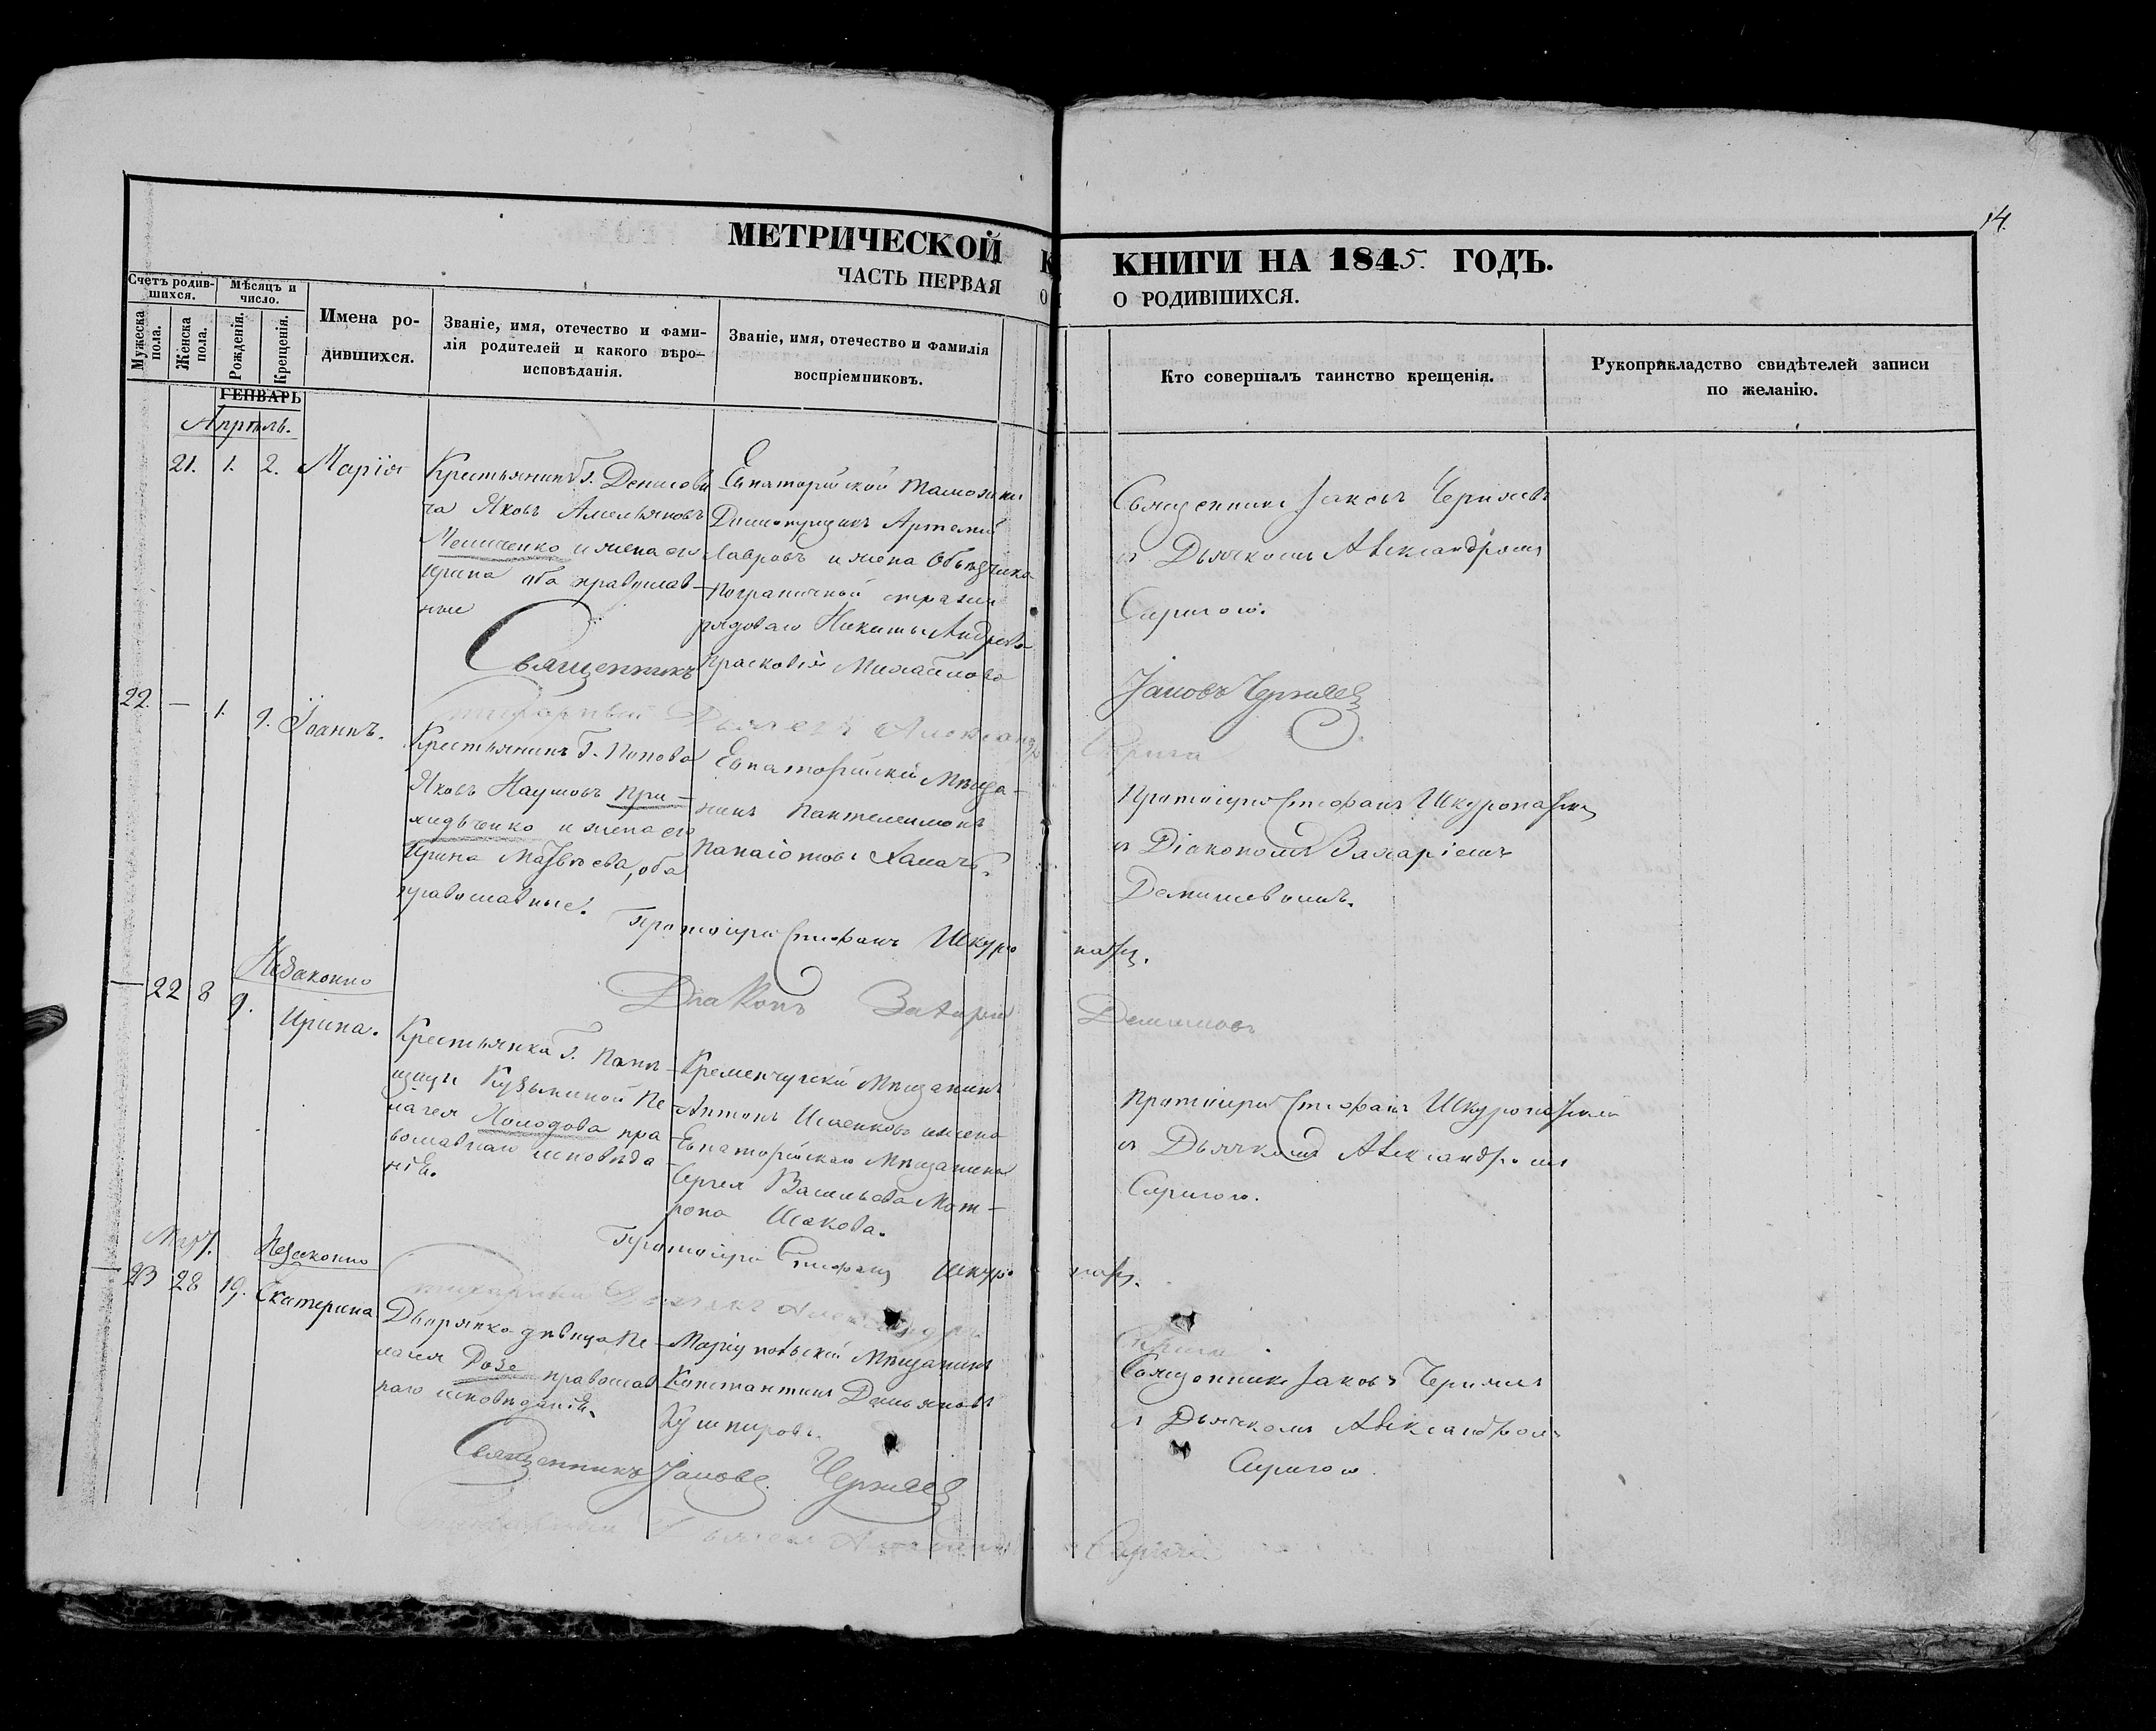 14.
МЕТРИЧЕСКОЙ КНИГИ НА 1845. ГОДЪ.
ЧАСТЬ ПЕРВАЯ О РОДИВШИХСЯ.
Счетъ родив-
шихся.
Мужеска
пола.
Женска
пола.
Мѣсяцъ и
число.
Рожденія.
Крещенія.
Имена ро-
дившихся.
Званіе, имя, отечество и фами-
лія родителей и какого вѣро-
исповѣданія.
Званіе, имя, отечество и фамилія
воспріемниковъ.
Кто совершалъ таинство крещенія.
Рукоприкладство свидѣтелей записи
по желанію.
ГЕНВАРЬ
Апрѣль.
21. 1. 2. Марія
Крестьянинъ Г. Денисови
ча Яковъ Амельяновъ
и жена его
Ирина оба православ-
ные
Евпаторійской Таможни
Артемій
Лавровъ и жена Объѣзчика
пограничной стражи
рядоваго Никиты Андреева
Прасковія Михайлова
Священникъ Іаковъ Черняевъ
съ Дьячкомъ Александромъ
Сиригою.
Священникъ Іаковъ Черняевъ
Дьячекъ Александръ Сирига
22. — 1. 9. Іоаннъ.
Крестьянинъ Г. Попова
Яковъ Наумовъ При-
ходьченко и жена его
Ирина Матвѣева, оба
православные.
Евпаторійскій Мѣща-
нинъ Пантелеимонъ
Панаіотовъ
Протоіерей Стефанъ Шкуропатскій
съ Діакономъ Захаріемъ
Протоіерей Стефанъ Шкуропатскій.
Діаконъ Захарій
Незаконно
— 22 8 9. Ирина.
Крестьянка Г.
Кузьминой Пе-
лагея Холодова пра-
вославнаго исповѣда-
нія.
Кременчугскій Мѣщанинъ
Антонъ Исаенковъ и жена
Евпаторійскаго Мѣщанина
Сергея Васильева Мат-
рона Исакова.
Протоіерей Стефанъ Шкуропатскій
съ Дьячкомъ Александромъ
Сиригою.
Протоіерей Стефанъ Шкуропатскій.
Дьячекъ Александръ Сирига
Март. Незаконно
— 23 28 19. Екатерина
Дворянка дѣвица Пе-
лагея Дозе православ
наго исповѣданія.
Маріупольскій Мѣщанинъ
Константинъ Демьяновъ
Кушнировъ.
Священникъ Іаковъ Черняевъ
съ Дьячкомъ Александромъ
Сиригою.
Священникъ Іаковъ Черняевъ
Сирига